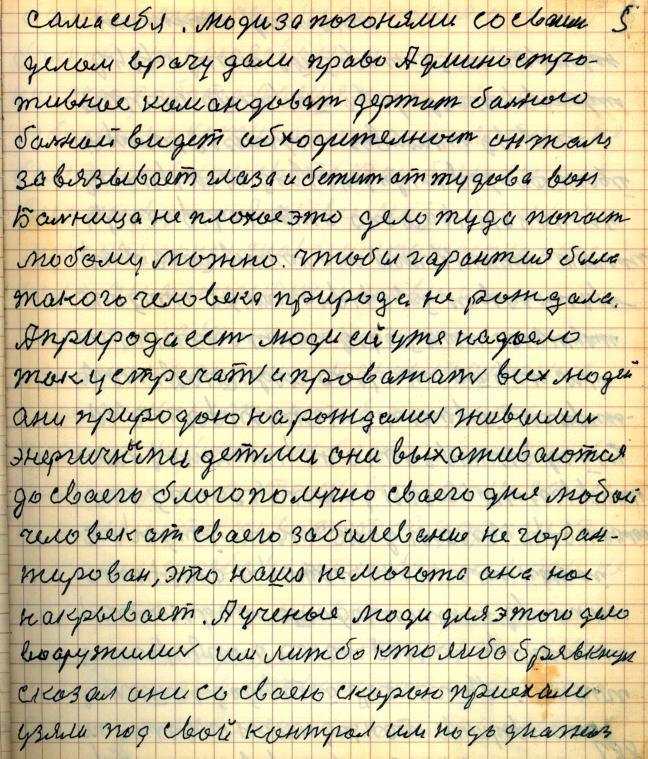 сама себя. Люди за погонями со своим 5
делом врачу дали право Админостро-
тивное командоват держат балного
балной видет обходителност он жаль
завязывает глаза и бежит оттудова вон
Балница не плохое это дело туда попаст
любому можно. Чтобы гарантия была
такого человека природа, не рождала.
А природа ест люди ей уже надоело
так устречат и проважат всех людей
ани природою нарождалис живыми
энергичными детми они выхаживаются
до сваего благополучно сваего дня любой
человек ат сваего заболевание не горан-
тирован, это наша немогота она нас
накрывает. А ученые люди для этого дело
вооружилис им лиж бо кто либо брявкнул
сказал они со сваею скорою приехали
узяли под свой контрол им подь диагноз